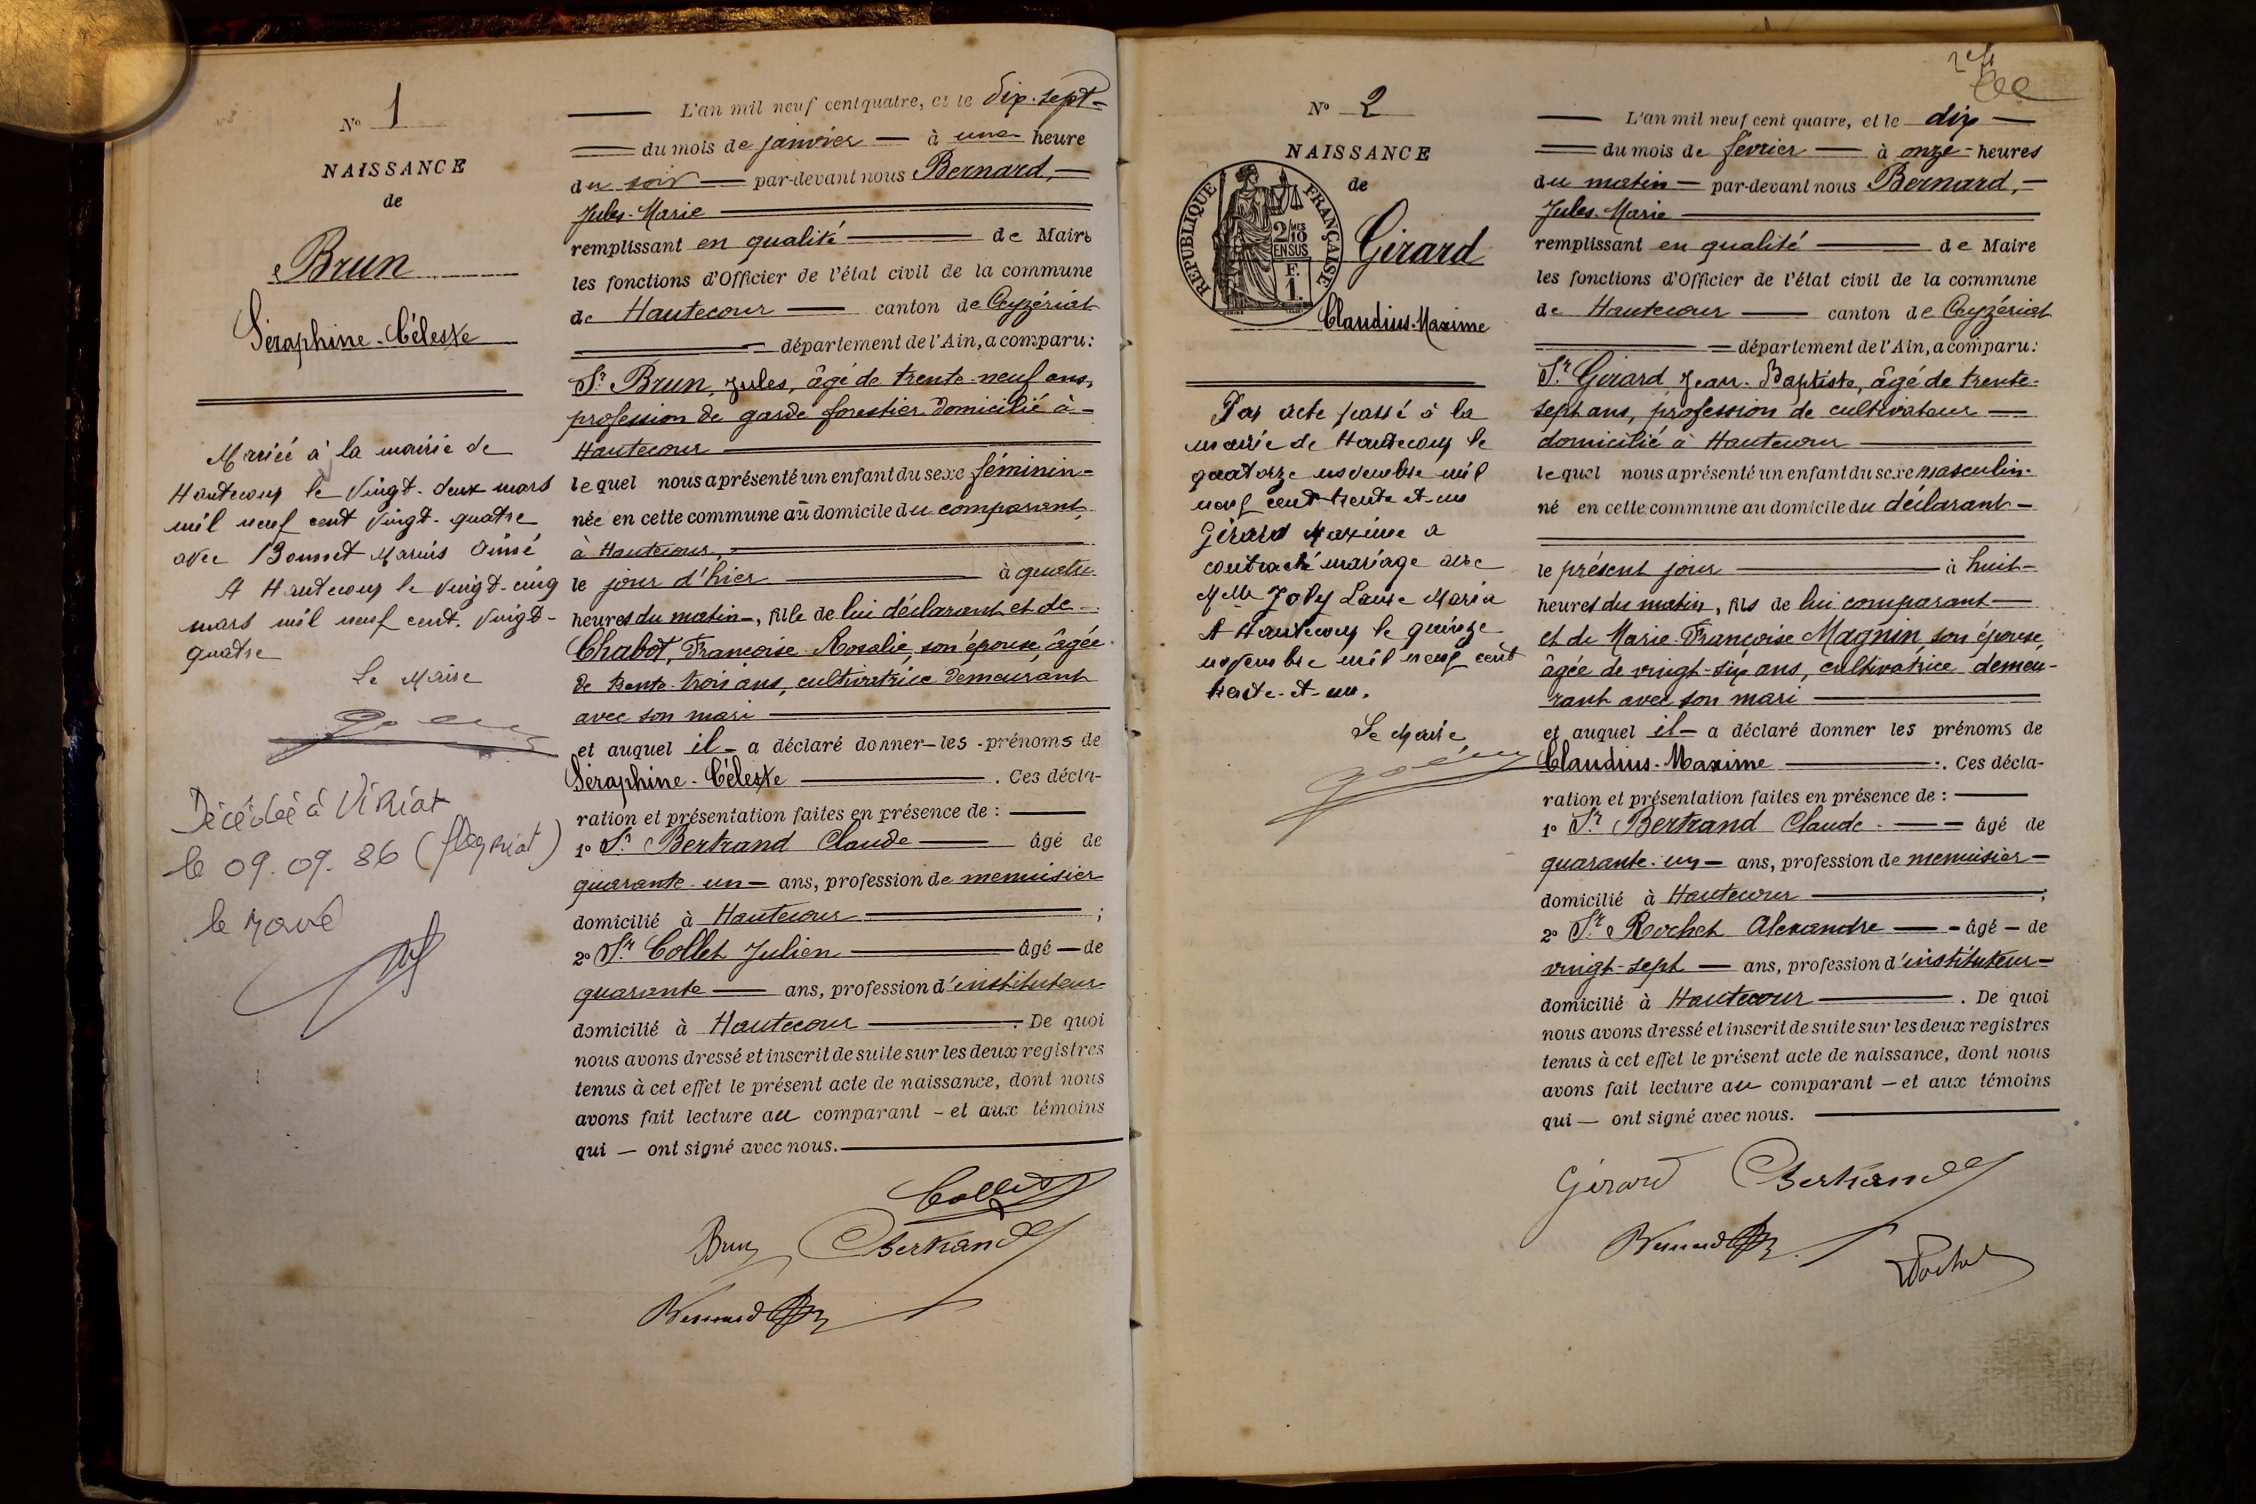 N° 1
NAISSANCE
de
Brun
Séraphine-Céleste
Mariée à la mairie de
Hautecour le vingt-deux mars
mil neuf cent vingt-quatre
avec Bonnet Marius Aimé
A Hautecour le vingt-cinq
mars mil neuf cent vingt-
quatre
Le Maire
Décédée à Viriat
le 09.09.86 (fleyriat)
L'an mil neuf cent quatre, et le dix-sept
du mois de janvier à une heure
du soir par-devant nous Bernard,
Jules-Marie
remplissant en qualité de Maire
les fonctions d'Officier de l'état civil de la commune
de Hautecour canton de Ceyzériat
département de l'Ain, a comparu :
Sr Brun, Jules, âgé de trente-neuf ans,
profession de garde forestier domicilié à
Hautecour
lequel nous a présenté un enfant du sexe féminin
née en cette commune au domicile du comparant,
à Hautecour,
le jour d'hier à quatre
heures du matin, fille de lui déclarant et de
Chabot, Françoise Rosalie, son épouse, âgée
de trente-trois ans, cultivatrice demeurant
avec son mari
et auquel il a déclaré donner les prénoms de
Séraphine-Céleste . Ces décla-
ration et présentation faites en présence de :
1° Sr Bertrand Claude âgé de
quarante-un ans, profession de menuisier
domicilié à Hautecour ;
2° Sr Collet Julien âgé de
quarante ans, profession d'instituteur
domicilié à Hautecour . De quoi
nous avons dressé et inscrit de suite sur les deux registres
tenus à cet effet le présent acte de naissance, dont nous
avons fait lecture au comparant et aux témoins
qui ont signé avec nous.
Collet
Brun Bertrand
Bernard
N° 2
NAISSANCE
de
RÉPUBLIQUE FRANÇAISE
2/10 MES
EN SUS
F.
1.
Girard
Claudius-Maxime
Par acte passé à la
mairie de Hautecour le
quatorze novembre mil
neuf cent trente et un
Girard Maxime a
contracté mariage avec
Melle Joly Laure Maria
A Hautecour le quinze
novembre mil neuf cent
trente-et-un.
Le Maire
L'an mil neuf cent quatre, et le dix
du mois de février à onze heures
du matin par-devant nous Bernard,
Jules-Marie
remplissant en qualité de Maire
les fonctions d'Officier de l'état civil de la commune
de Hautecour canton de Ceyzériat
département de l'Ain, a comparu :
Sr Girard Jean-Baptiste, âgé de trente-
sept ans, profession de cultivateur
domicilié à Hautecour
lequel nous a présenté un enfant du sexe masculin
né en cette commune au domicile du déclarant
le présent jour à huit
heures du matin, fils de lui comparant
et de Marie-Françoise Magnin, son épouse,
âgée de vingt-six ans, cultivatrice demeu-
rant avec son mari
et auquel il a déclaré donner les prénoms de
Claudius-Maxime . Ces décla-
ration et présentation faites en présence de :
1° Sr Bertrand Claude âgé de
quarante-un ans, profession de menuisier
domicilié à Hautecour ;
2° Sr Rochet Alexandre âgé de
vingt-sept ans, profession d'instituteur
domicilié à Hautecour . De quoi
nous avons dressé et inscrit de suite sur les deux registres
tenus à cet effet le présent acte de naissance, dont nous
avons fait lecture au comparant et aux témoins
qui ont signé avec nous.
Girard Bertrand
Bernard Rochet